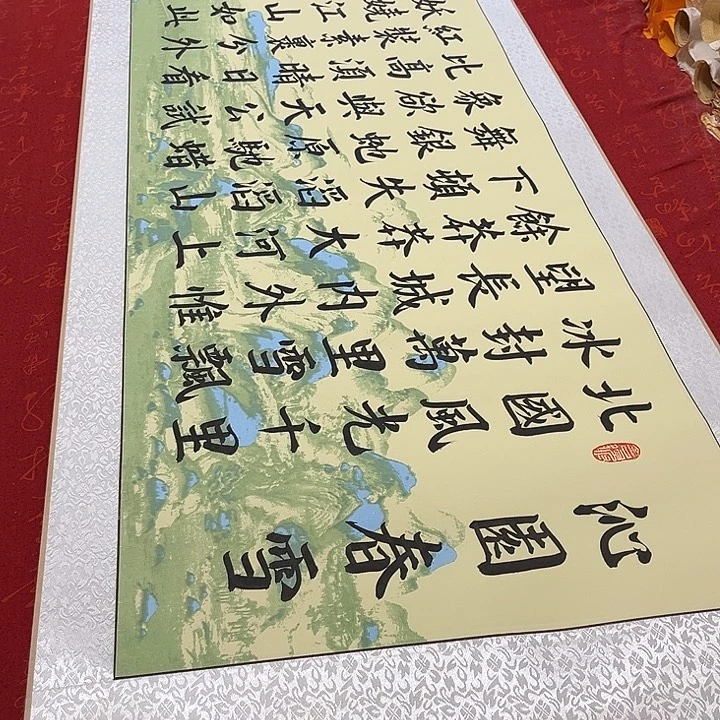 沁園春雪
北國風光千里
冰封萬里雪飄
望長城内外惟
餘莽莽大河上
下頓失滔滔山
舞銀蛇原馳蜡
象欲與天公試
比高須晴日看
紅裝素裹分外
妖嬈江山如此